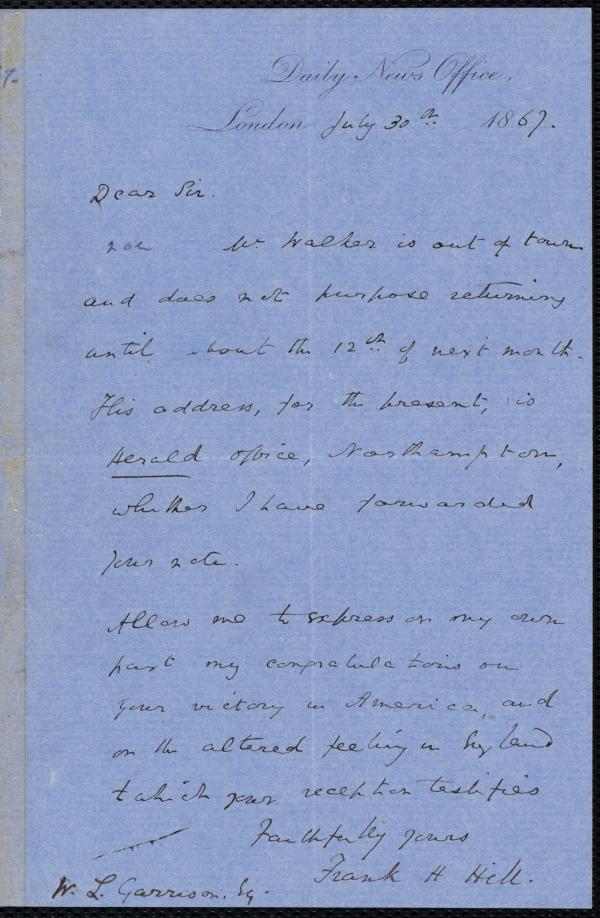 Daily News Office,
London July 30th 1867.
Dear Sir.
Mr Walker is out of town
and does not purpose returning
until about the 12th of next month.
His address, for the present, is
Herald Office, Northampton,
whither I have forwarded
your note.
Allow me to express on my own
part my congratulations on
your victory in America, and
on the altered feeling in England
to which your reception testifies
Faithfully yours
Frank H Hill.
W. L. Garrison, Esq.